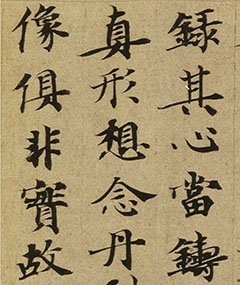 錄其心當鑄
真形想念丹
像俱非實故